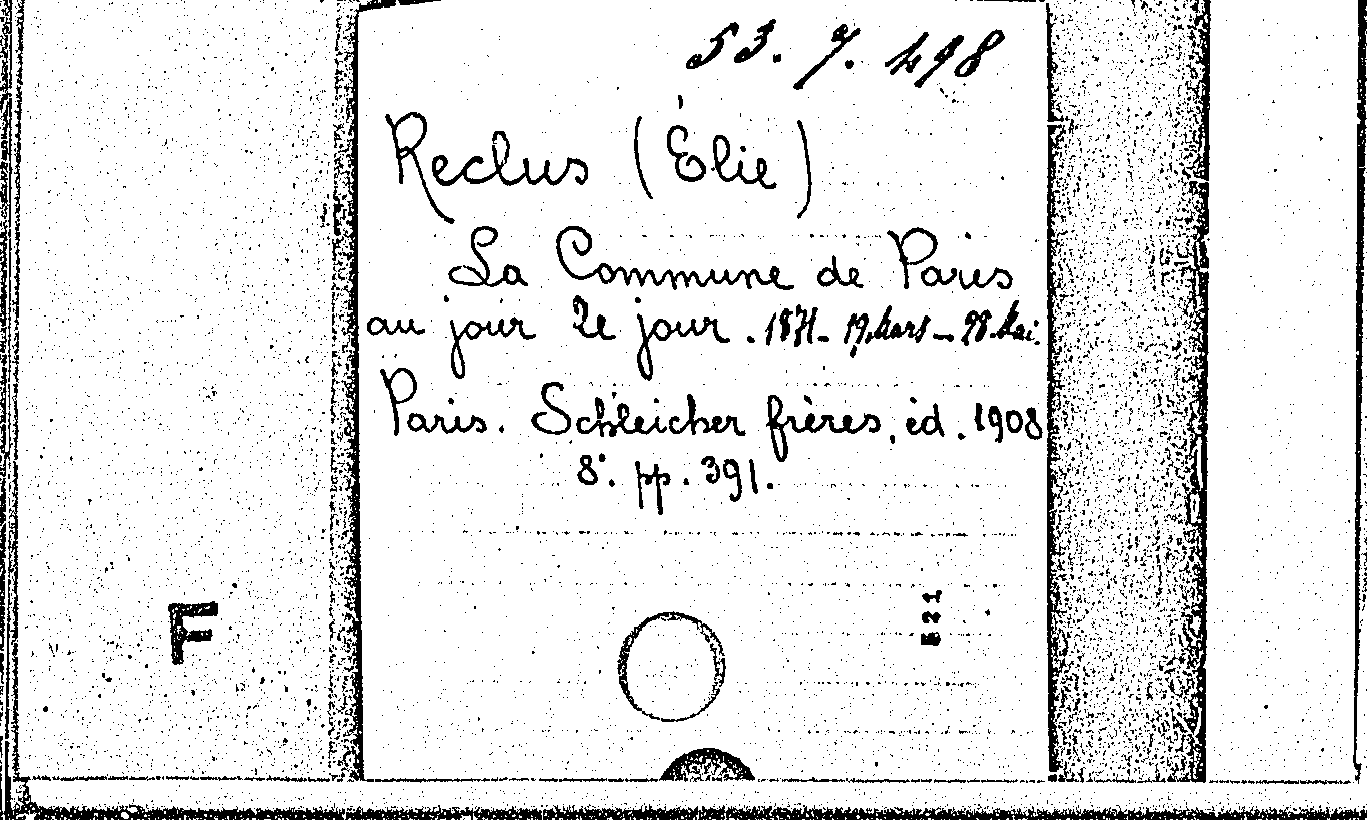 53. 7. 498
Reclus (Élie)
La Commune de Paris
au jour le jour. 1871. 19. Mars — 28. Mai.
Paris. Schleicher frères, éd. 1908
8°. pp. 391.
F
521